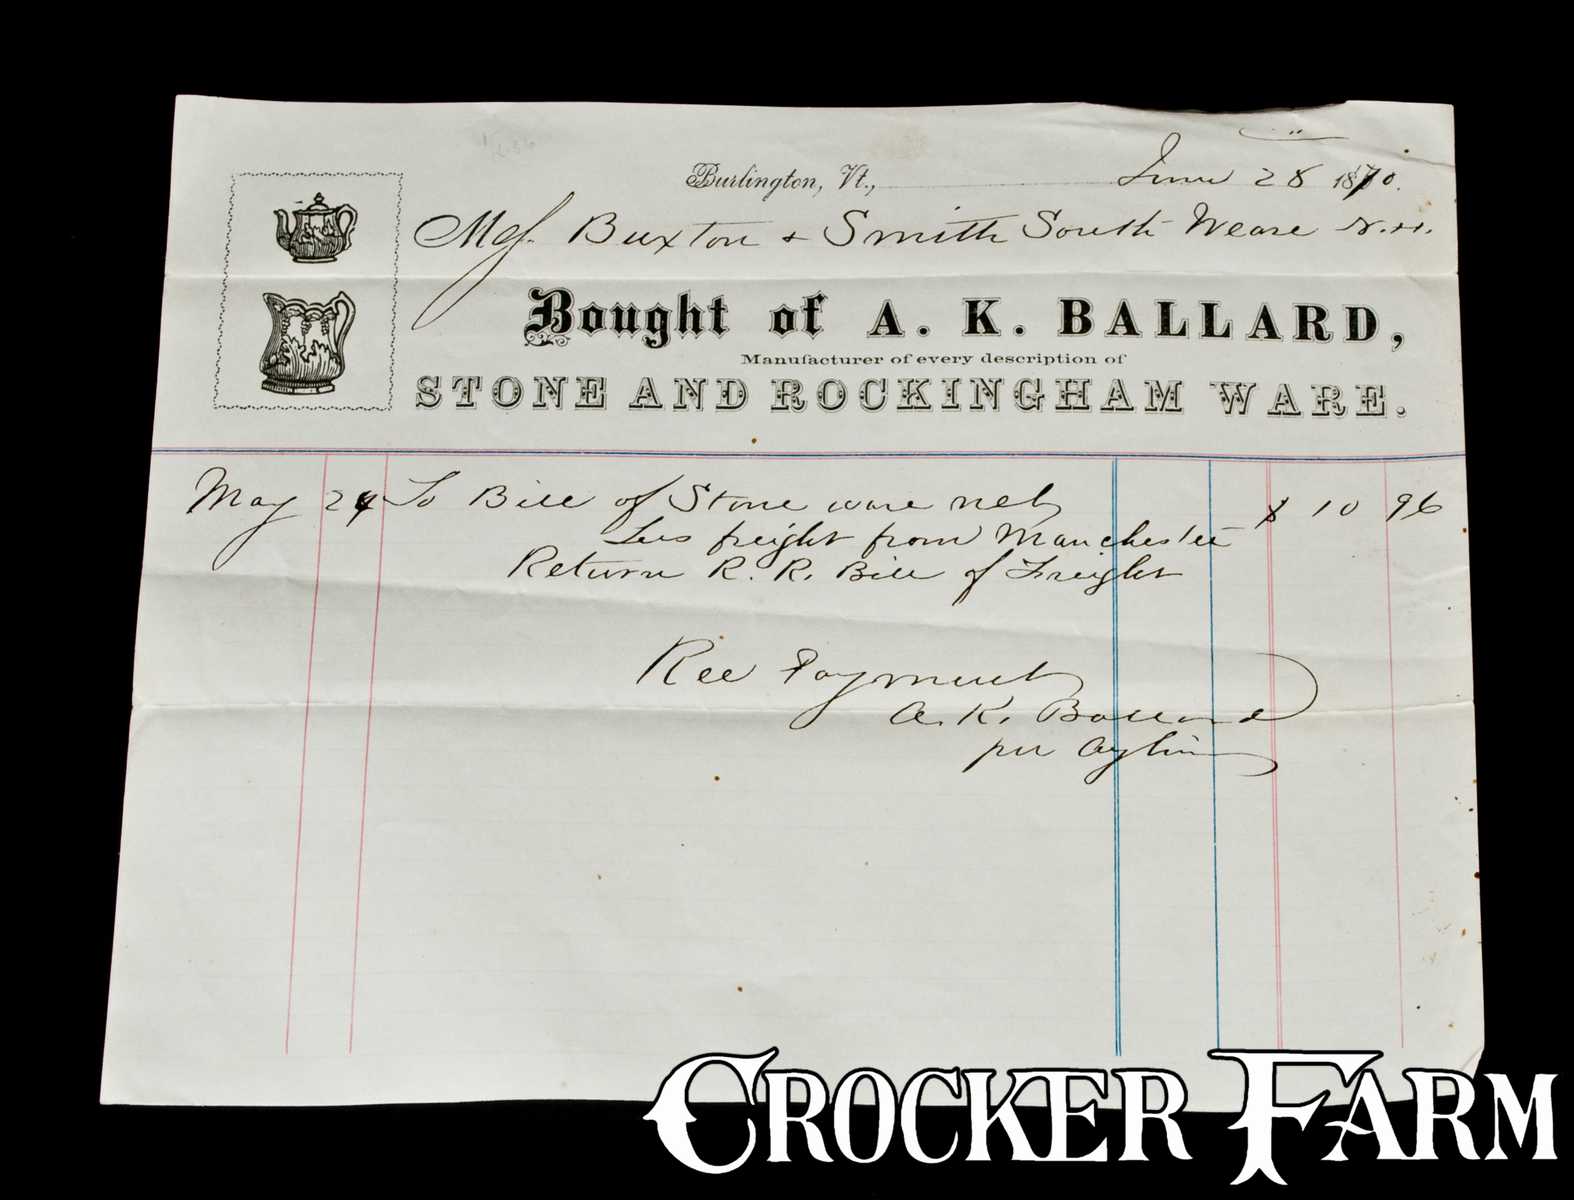 Burlington, Vt., June 28 1870.
Mess. Buxton & Smith South Weare N.H.
Bought of A. K. BALLARD,
Manufacturer of every description of
STONE AND ROCKINGHAM WARE.
May 24 To Bill of Stone ware net $ 10 96
Less freight from Manchester
Return R. R. Bill of Freight
Rec Payment
A. K. Ballard
per
CROCKER FARM